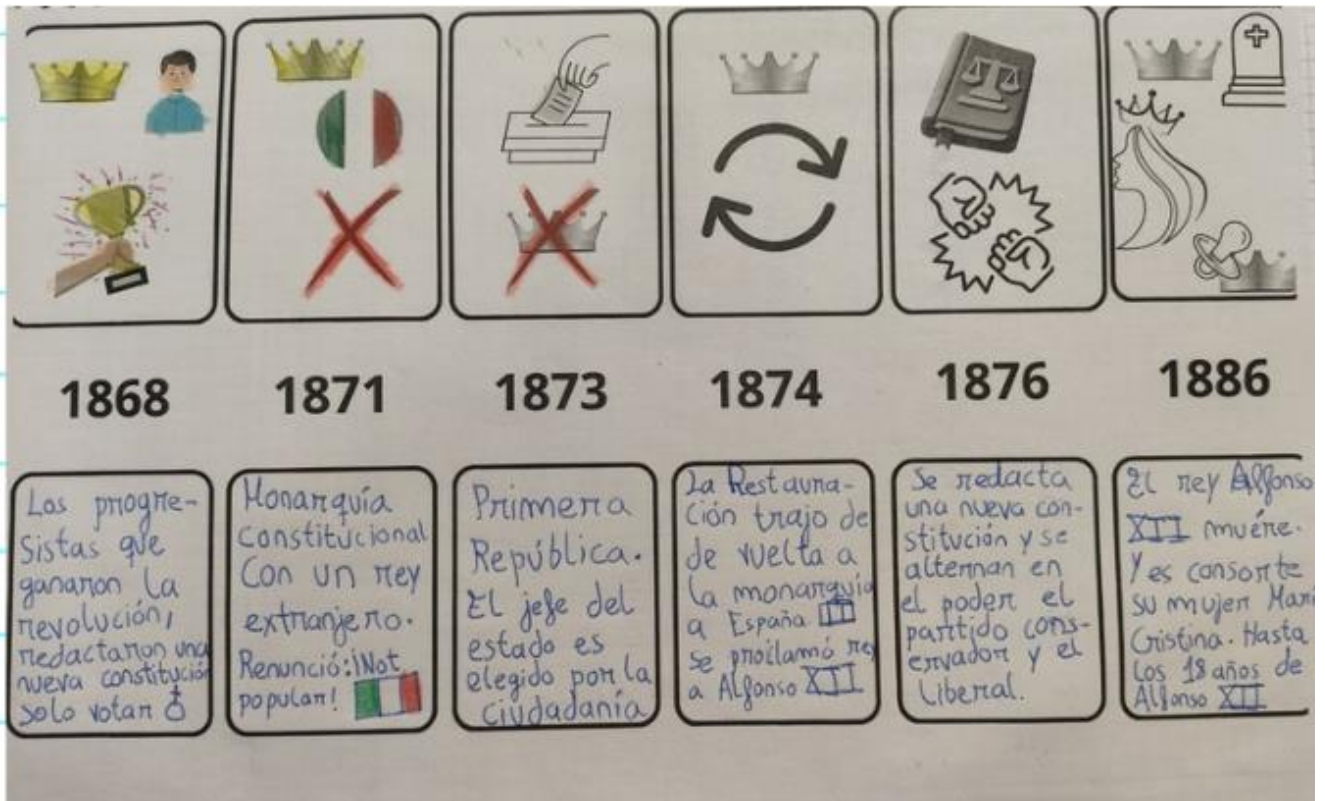 1868
1871
1873
1874
1876
1886
Los progre-
sistas que
ganaron la
revolución,
redactaron una
nueva constitución
solo votan ♂
Monarquía
constitucional
Con un rey
extranjero.
Renunció: ¡Not
popular!
Primera
República.
El jefe del
estado es
elegido por la
ciudadanía
La Restaura-
ción trajo de
de vuelta a
la monarquía
a España
se proclamó rey
a Alfonso XII
Se redacta
una nueva con-
stitución y se
alternan en
el poder el
partido cons-
ervador y el
Liberal.
El rey Alfonso
XII muére.
Y es consorte
su mujer Mari
Cristina. Hasta
los 18 años de
Alfonso XII